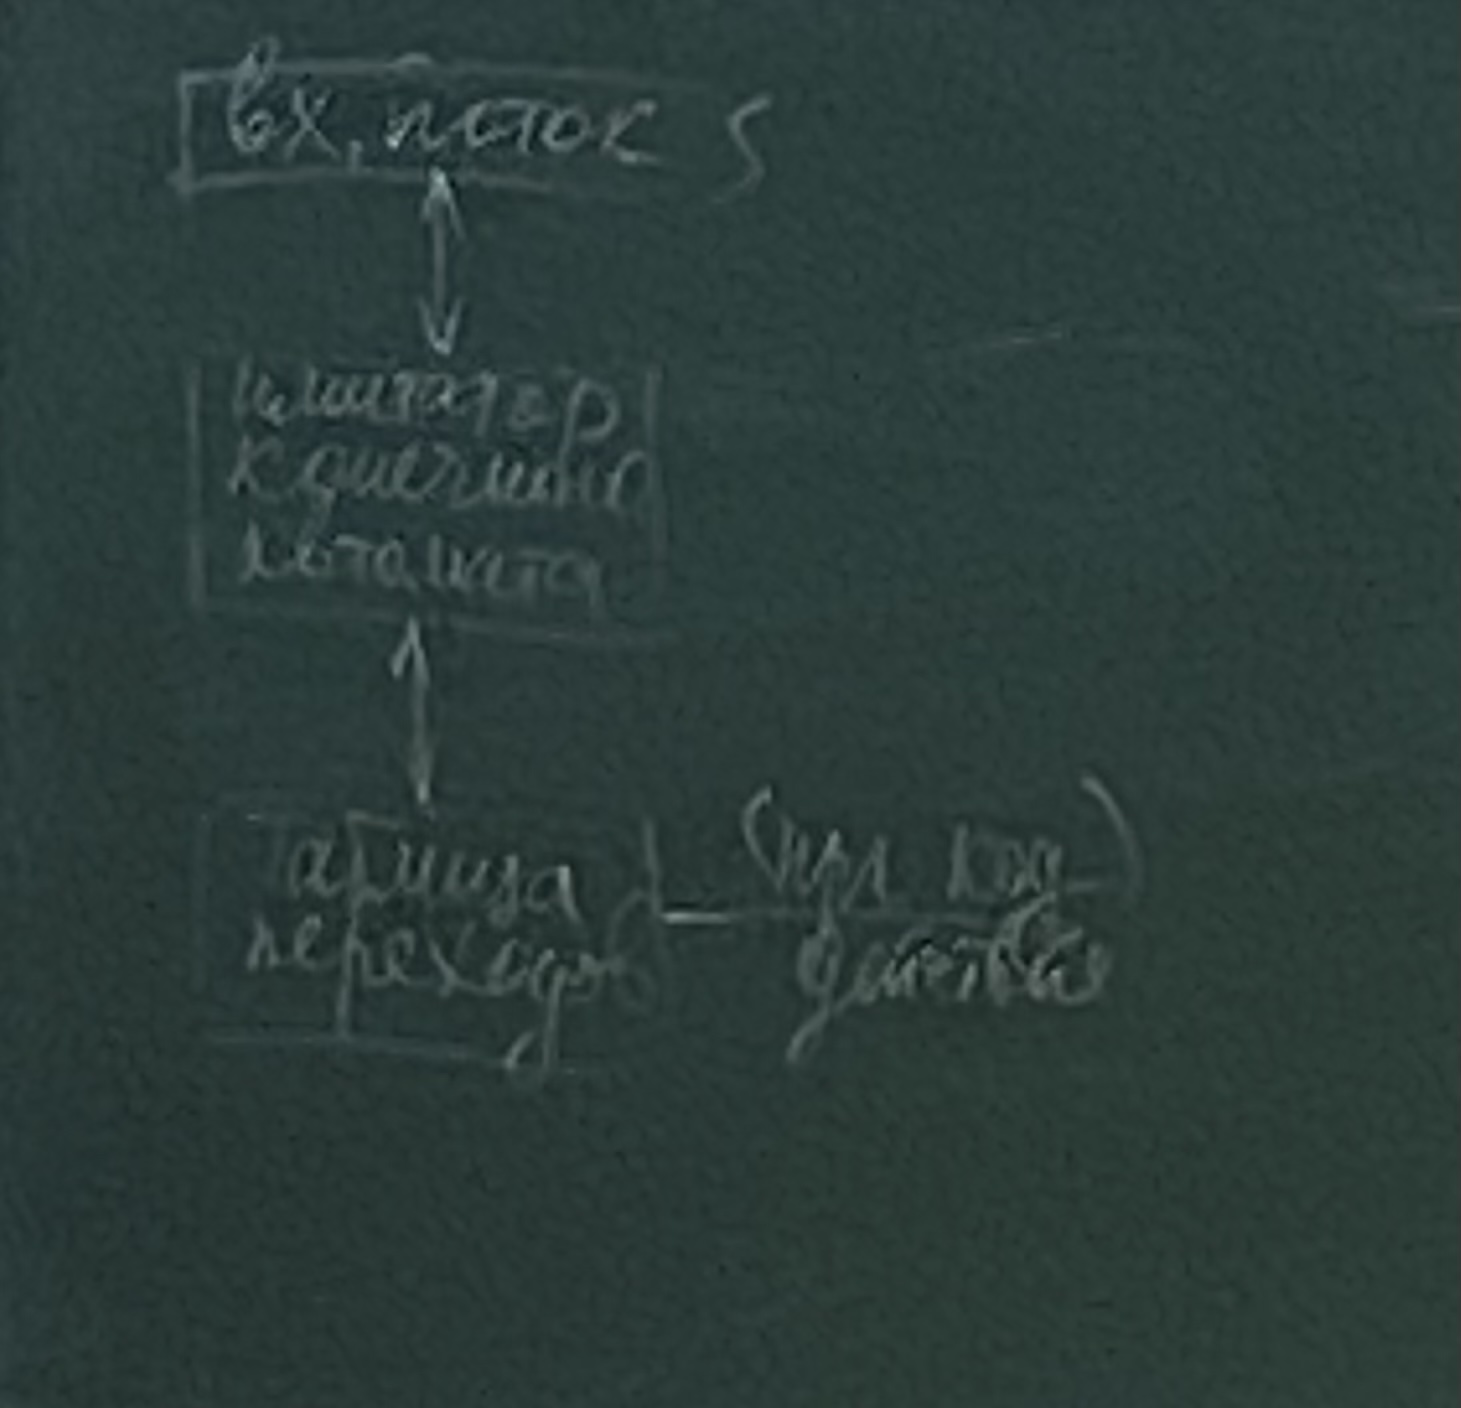 вх. поток
имитатор
конечного
автомата
Таблица
переходов
(код)
действие